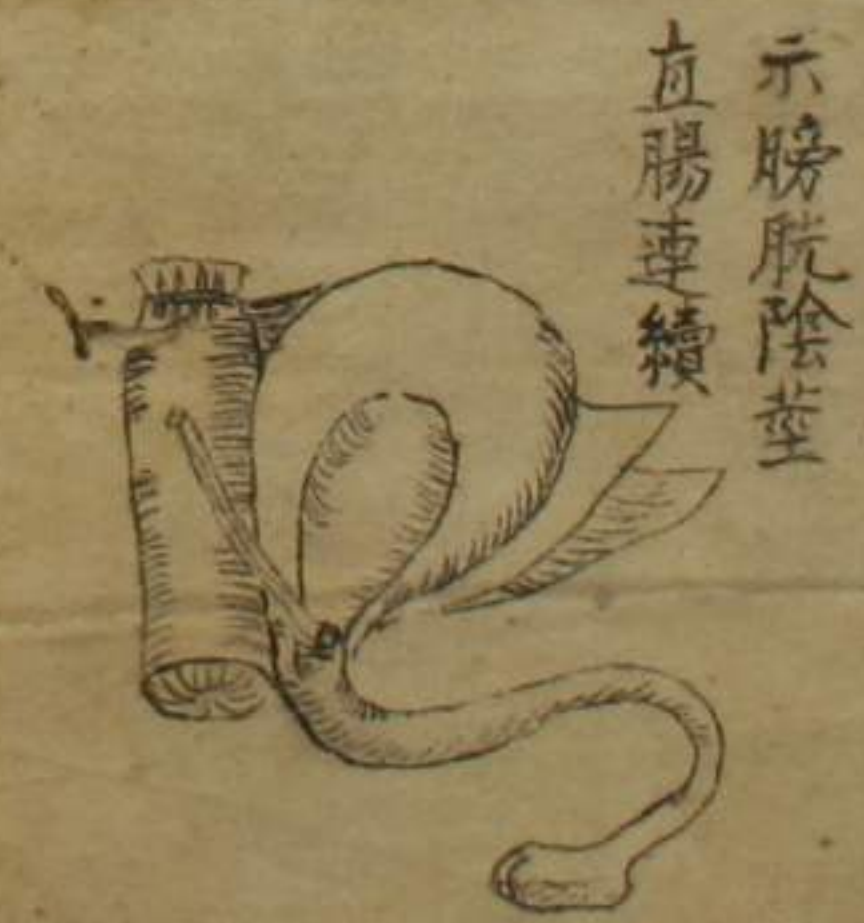 示膀胱陰莖
直腸連續